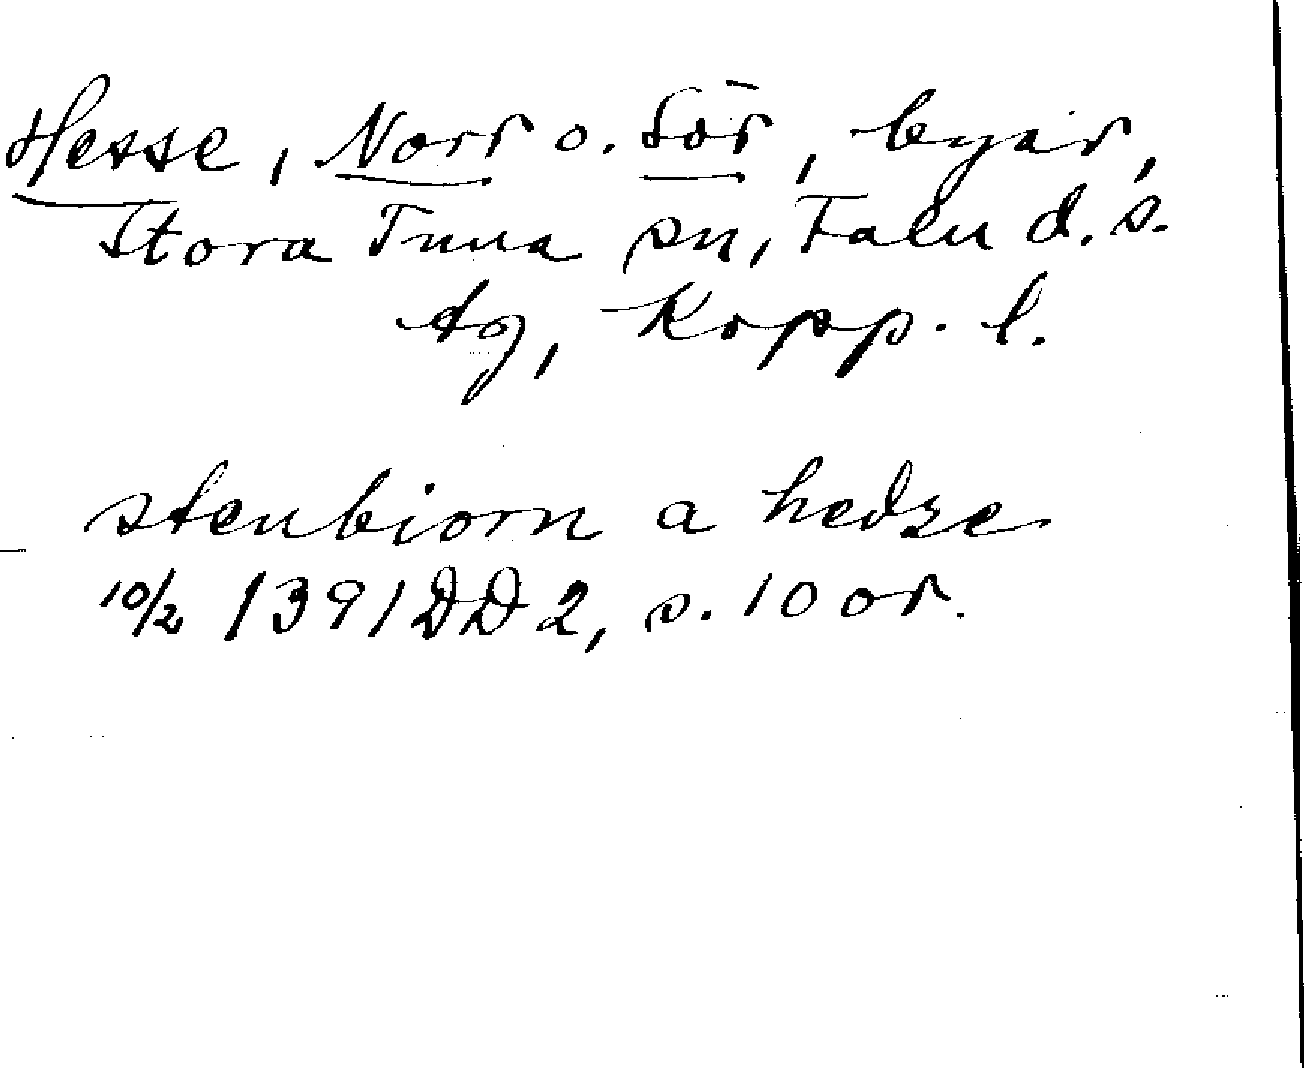 Hesse, Norr o. Sör, byar,
Stora Tuna sn, Falu d. s.
tg, Kopp. l.
stenbiorn a hedze
10/2 1391 DD 2, s. 10 or.